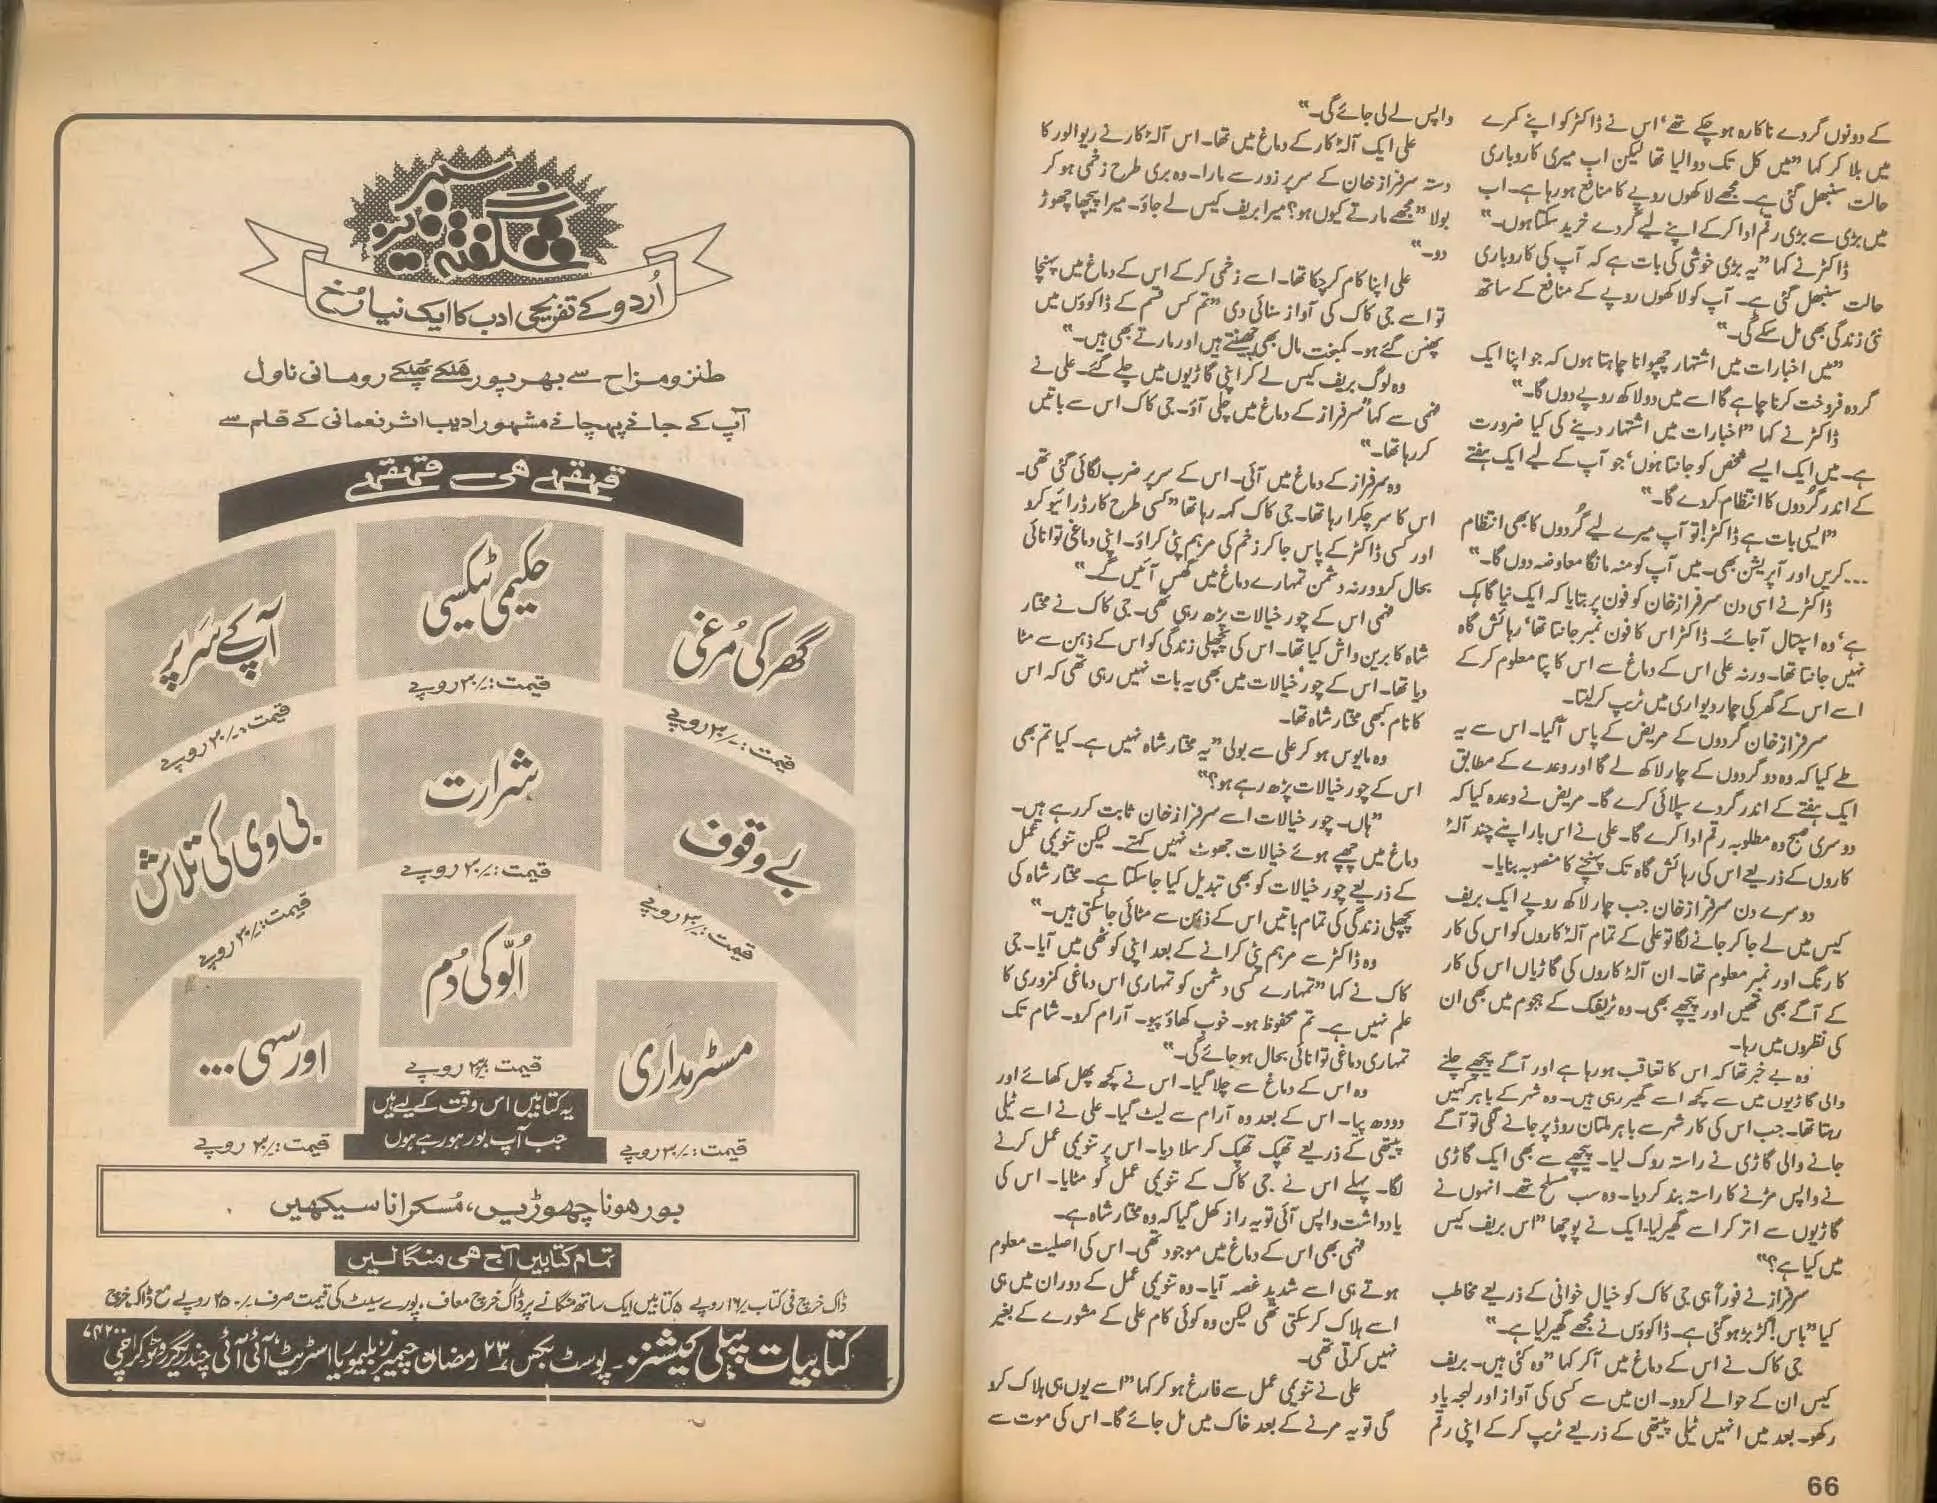 کے دونوں گردے ناکارہ ہو چکے تھے‘ اس نے ڈاکٹر کو اپنے کمرے
میں بلا کر کہا ”میں کل تک دوالیا تھا لیکن اب میری کاروباری
حالت سنبھل گئی ہے۔ مجھے لاکھوں روپے کا منافع ہو رہا ہے۔ اب
میں بڑی سے بڑی رقم ادا کرکے اپنے لیے گُردے خرید سکتا ہوں۔“
ڈاکٹر نے کہا ”یہ بڑی خوشی کی بات ہے کہ آپ کی کاروباری
حالت سنبھل گئی ہے۔ آپ کو لاکھوں روپے کے منافع کے ساتھ
نئی زندگی بھی مل سکے گی۔“
”میں اخبارات میں اشتہار چھپوانا چاہتا ہوں کہ جو اپنا ایک
گردہ فروخت کرنا چاہے گا اسے میں دو لاکھ روپے دوں گا۔“
ڈاکٹر نے کہا ”اخبارات میں اشتہار دینے کی کیا ضرورت
ہے۔ میں ایک ایسے شخص کو جانتا ہوں‘ جو آپ کے لیے ایک ہفتے
کے اندر گُردوں کا انتظام کردے گا۔“
”ایسی بات ہے ڈاکٹر! تو آپ میرے لیے گُردوں کا بھی انتظام
... کریں اور آپریشن بھی۔ میں آپ کو منہ مانگا معاوضہ دوں گا۔“
ڈاکٹر نے اسی دن سرفراز خان کو فون پر بتایا کہ ایک نیا گاہک
ہے‘ وہ اسپتال آجائے۔ ڈاکٹر اس کا فون نمبر جانتا تھا‘ رہائش گاہ
نہیں جانتا تھا۔ ورنہ علی اس کے دماغ سے اس کا پتا معلوم کرکے
اسے اس کے گھر کی چار دیواری میں ٹریپ کرلیتا۔
سرفراز خان گردوں کے مریض کے پاس آگیا۔ اس سے یہ
طے کیا کہ وہ دو گردوں کے چار لاکھ لے گا اور وعدے کے مطابق
ایک ہفتے کے اندر گردے سپلائی کرے گا۔ مریض نے وعدہ کیا کہ
دوسری صبح وہ مطلوبہ رقم ادا کرے گا۔ علی نے اس بار اپنے چند آلۂ
کاروں کے ذریعے اس کی رہائش گاہ تک پہنچنے کا منصوبہ بنایا۔
دوسرے دن سرفراز خان جب چار لاکھ روپے ایک بریف
کیس میں لے جا کر جانے لگا تو علی کے تمام آلۂ کاروں کو اس کی کار
کا رنگ اور نمبر معلوم تھا۔ ان آلۂ کاروں کی گاڑیاں اس کی کار
کے آگے بھی تھیں اور پیچھے بھی۔ وہ ٹریفک کے ہجوم میں بھی ان
کی نظروں میں رہا۔
وہ بے خبر تھا کہ اس کا تعاقب ہو رہا ہے اور آگے پیچھے چلنے
والی گاڑیوں میں سے کچھ اسے گھیر رہی ہیں۔ وہ شہر کے باہر کہیں
رہتا تھا۔ جب اس کی کار شہر سے باہر ملتان روڈ پر جانے لگی تو آگے
جانے والی گاڑی نے راستہ روک لیا۔ پیچھے سے بھی ایک گاڑی
نے واپس مڑنے کا راستہ بند کردیا۔ وہ سب مسلح تھے۔ انہوں نے
گاڑیوں سے اتر کر اسے گھیر لیا۔ ایک نے پوچھا ”اس بریف کیس
میں کیا ہے؟“
سرفراز نے فوراً ہی جی کاک کو خیال خوانی کے ذریعے مخاطب
کیا ”باس! گڑبڑ ہوگئی ہے۔ ڈاکوؤں نے مجھے گھیر لیا ہے۔“
جی کاک نے اس کے دماغ میں آکر کہا ”وہ کئی ہیں۔ بریف
کیس ان کے حوالے کردو۔ ان میں سے کسی کی آواز اور لہجہ یاد
رکھو۔ بعد میں انہیں ٹیلی پیتھی کے ذریعے ٹریپ کرکے اپنی رقم
واپس لے لی جائے گی۔“
علی ایک آلۂ کار کے دماغ میں تھا۔ اس آلۂ کار نے ریوالور کا
دستہ سرفراز خان کے سر پر زور سے مارا۔ وہ بری طرح زخمی ہو کر
بولا ”مجھے مارتے کیوں ہو؟ میرا بریف کیس لے جاؤ۔ میرا پیچھا چھوڑ
دو۔“
علی اپنا کام کرچکا تھا۔ اسے زخمی کرکے اس کے دماغ میں پہنچا
تو اسے جی کاک کی آواز سنائی دی ”تم کس قسم کے ڈاکوؤں میں
پھنس گئے ہو۔ کمبخت مال بھی چھینتے ہیں اور مارتے بھی ہیں۔“
وہ لوگ بریف کیس لے کر اپنی گاڑیوں میں چلے گئے۔ علی نے
فہمی سے کہا ”سرفراز کے دماغ میں چلی آؤ۔ جی کاک اس سے باتیں
کر رہا تھا۔“
وہ سرفراز کے دماغ میں آئی۔ اس کے سر پر ضرب لگائی گئی تھی۔
اس کا سر چکرا رہا تھا۔ جی کاک کہہ رہا تھا ”کسی طرح کار ڈرائیو کرو
اور کسی ڈاکٹر کے پاس جا کر زخم کی مرہم پٹی کراؤ۔ اپنی دماغی توانائی
بحال کرو ورنہ دشمن تمہارے دماغ میں گھس آئیں گے۔“
فہمی اس کے چور خیالات پڑھ رہی تھی۔ جی کاک نے مختار
شاہ کا برین واش کیا تھا۔ اس کی پچھلی زندگی کو اس کے ذہن سے مٹا
دیا تھا۔ اس کے چور خیالات میں بھی یہ بات نہیں رہی تھی کہ اس
کا نام کبھی مختار شاہ تھا۔
وہ مایوس ہو کر علی سے بولی ”یہ مختار شاہ نہیں ہے۔ کیا تم بھی
اس کے چور خیالات پڑھ رہے ہو؟“
”ہاں۔ چور خیالات اسے سرفراز خان ثابت کر رہے ہیں۔
دماغ میں چھپے ہوئے خیالات جھوٹ نہیں کہتے۔ لیکن تنویمی عمل
کے ذریعے چور خیالات کو بھی تبدیل کیا جاسکتا ہے۔ مختار شاہ کی
پچھلی زندگی کی تمام باتیں اس کے ذہن سے مٹائی جاسکتی ہیں۔“
وہ ڈاکٹر سے مرہم پٹی کرانے کے بعد اپنی کوٹھی میں آیا۔ جی
کاک نے کہا ”تمہارے کسی دشمن کو تمہاری اس دماغی کمزوری کا
علم نہیں ہے۔ تم محفوظ ہو۔ خوب کھاؤ پیو۔ آرام کرو۔ شام تک
تمہاری دماغی توانائی بحال ہو جائے گی۔“
وہ اس کے دماغ سے چلا گیا۔ اس نے کچھ پھل کھائے اور
دودھ پیا۔ اس کے بعد وہ آرام سے لیٹ گیا۔ علی نے اسے ٹیلی
پیتھی کے ذریعے تھپک تھپک کر سلا دیا۔ اس پر تنویمی عمل کرنے
لگا۔ پہلے اس نے جی کاک کے تنویمی عمل کو مٹایا۔ اس کی
یادداشت واپس آئی تو یہ راز کھل گیا کہ وہ مختار شاہ ہے۔
فہمی بھی اس کے دماغ میں موجود تھی۔ اس کی اصلیت معلوم
ہوتے ہی اسے شدید غصہ آیا۔ وہ تنویمی عمل کے دوران میں ہی
اسے ہلاک کرسکتی تھی لیکن وہ کوئی کام علی کے مشورے کے بغیر
نہیں کرتی تھی۔
علی نے تنویمی عمل سے فارغ ہو کر کہا ”اسے یوں ہی ہلاک کرو
گی تو یہ مرنے کے بعد خاک میں مل جائے گا۔ اس کی موت سے
66
شگفتہ سیریز
اُردو کے تفریحی ادب کا ایک نیا رُخ
طنز و مزاح سے بھرپور ہلکے پھلکے رومانی ناول
آپ کے جانے پہچانے مشہور ادیب اثر نعمانی کے قلم سے
قہقہے ہی قہقہے
گھر کی مُرغی
قیمت :۔/۳۰ روپے
حکیمی ٹیکسی
قیمت :۔/۳۰ روپے
آپ کے سَر پر
قیمت :۔/۳۰ روپے
بے وقوف
قیمت :۔/۳۰ روپے
شرارت
قیمت :۔/۳۰ روپے
بی وی کی تلاش
قیمت :۔/۳۰ روپے
مسٹر مداری
قیمت :۔/۳۰ روپے
اُلّو کی دُم
قیمت :۔/۳۰ روپے
اور سہی...
قیمت :۔/۳۰ روپے
یہ کتابیں اس وقت کے لیے ہیں
جب آپ بور ہو رہے ہوں
بور ہونا چھوڑیں، مُسکرانا سیکھیں
تمام کتابیں آج ہی منگا لیں
ڈاک خرچ فی کتاب ۔/۱۶ روپے ۵ کتابیں ایک ساتھ منگانے پر ڈاک خرچ معاف، پورے سیٹ کی قیمت صرف ۔/۲۵۰ روپے مع ڈاک خرچ
کتابیات پبلی کیشنز۔ پوسٹ بکس ۲۳ رمضان چیمبرز بلیموریا اسٹریٹ آئی آئی چندریگر روڈ کراچی ۷۴۲۰۰